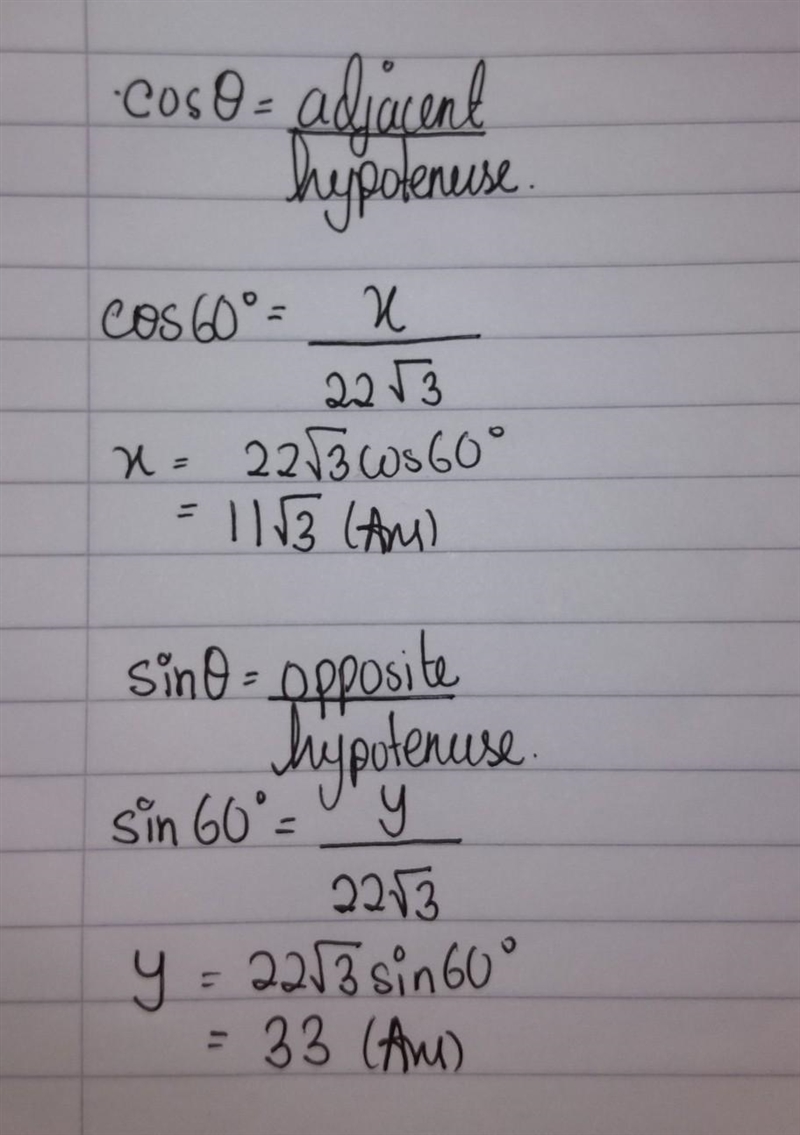 cosθ = adjacent
hypotenuse.
cos60° = x
22√3
x = 22√3 cos60°
= 11√3 (Ans)
sinθ = opposite
hypotenuse.
sin60° = y
22√3
y = 22√3 sin60°
= 33 (Ans)